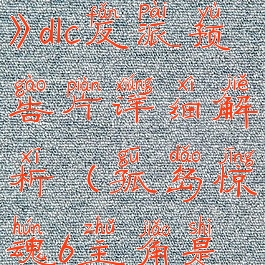 fǎn pài yù
》dlc反派预
gào piàn xiáng xì jiě
告片详细解
xī gū dǎo jīng
析(孤岛惊
hún zhǔ jiǎo shì
魂6主角是